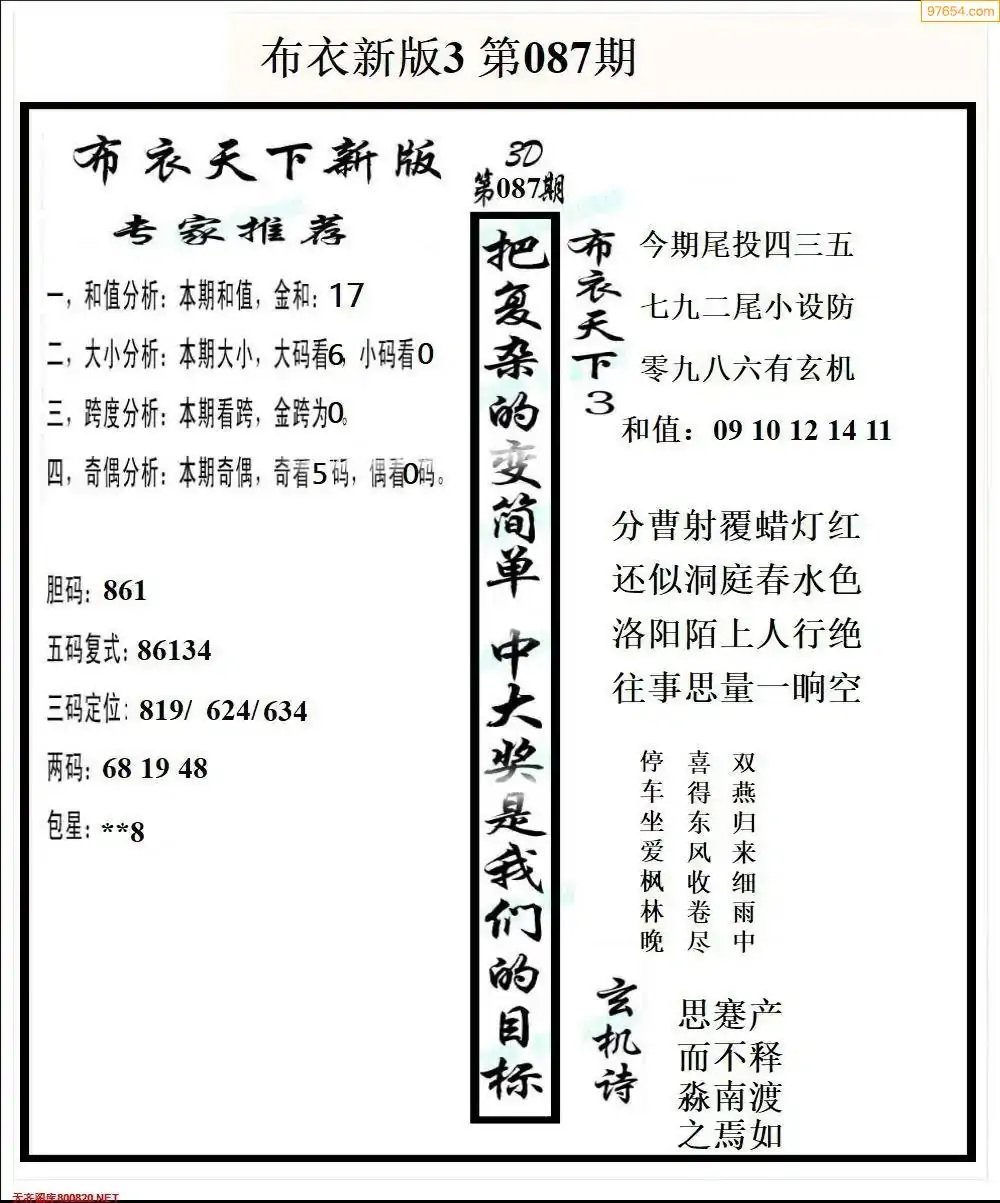 97654.com
布衣新版3 第087期
布衣天下新版
专家推荐
一，和值分析：本期和值，金和：17
二，大小分析：本期大小，大码看6，小码看0
三，跨度分析：本期看跨，金跨为0。
四，奇偶分析：本期奇偶，奇看5码，偶看0码。
胆码：861
五码复式：86134
三码定位：819/ 624/634
两码：68 19 48
包星：**8
3D
第087期
把复杂的变简单 中大奖是我们的目标
布衣天下3
今期尾投四三五
七九二尾小设防
零九八六有玄机
和值：09 10 12 14 11
分曹射覆蜡灯红
还似洞庭春水色
洛阳陌上人行绝
往事思量一晌空
双燕归来细雨中
喜得东风收卷尽
停车坐爱枫林晚
玄机诗
思蹇产
而不释
淼南渡
之焉如
天齐图库800820.NET